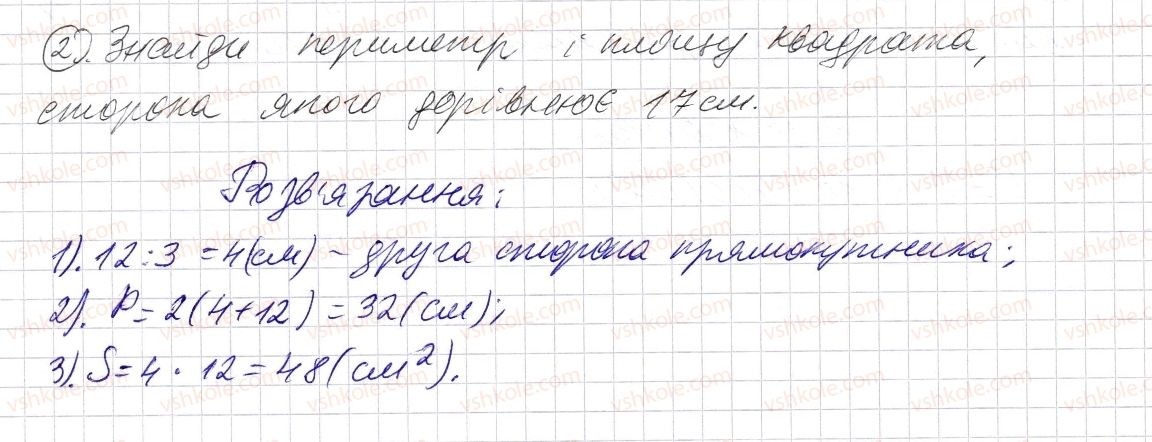 2). Знайди периметр і площу квадрата,
сторона якого дорівнює 17 см.
Розв'язання:
1). 12 : 3 = 4(см) - друга сторона прямокутника;
2). P = 2(4+12) = 32(см);
3). S = 4 · 12 = 48(см²).